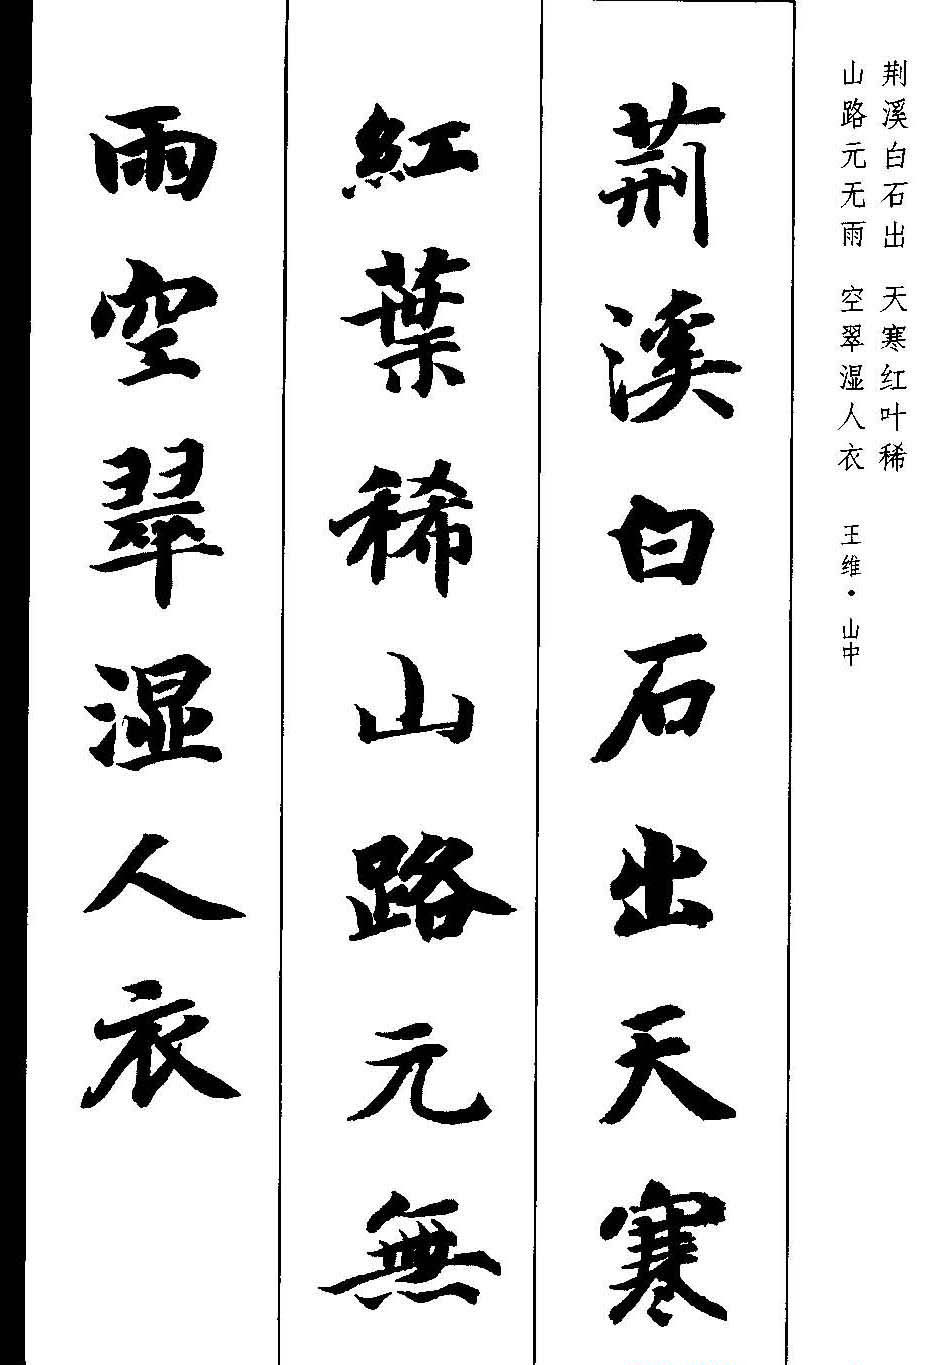 荆溪白石出 天寒红叶稀
山路元无雨 空翠湿人衣
王维·山中
荆溪白石出天寒
紅葉稀山路元無
雨空翠湿人衣